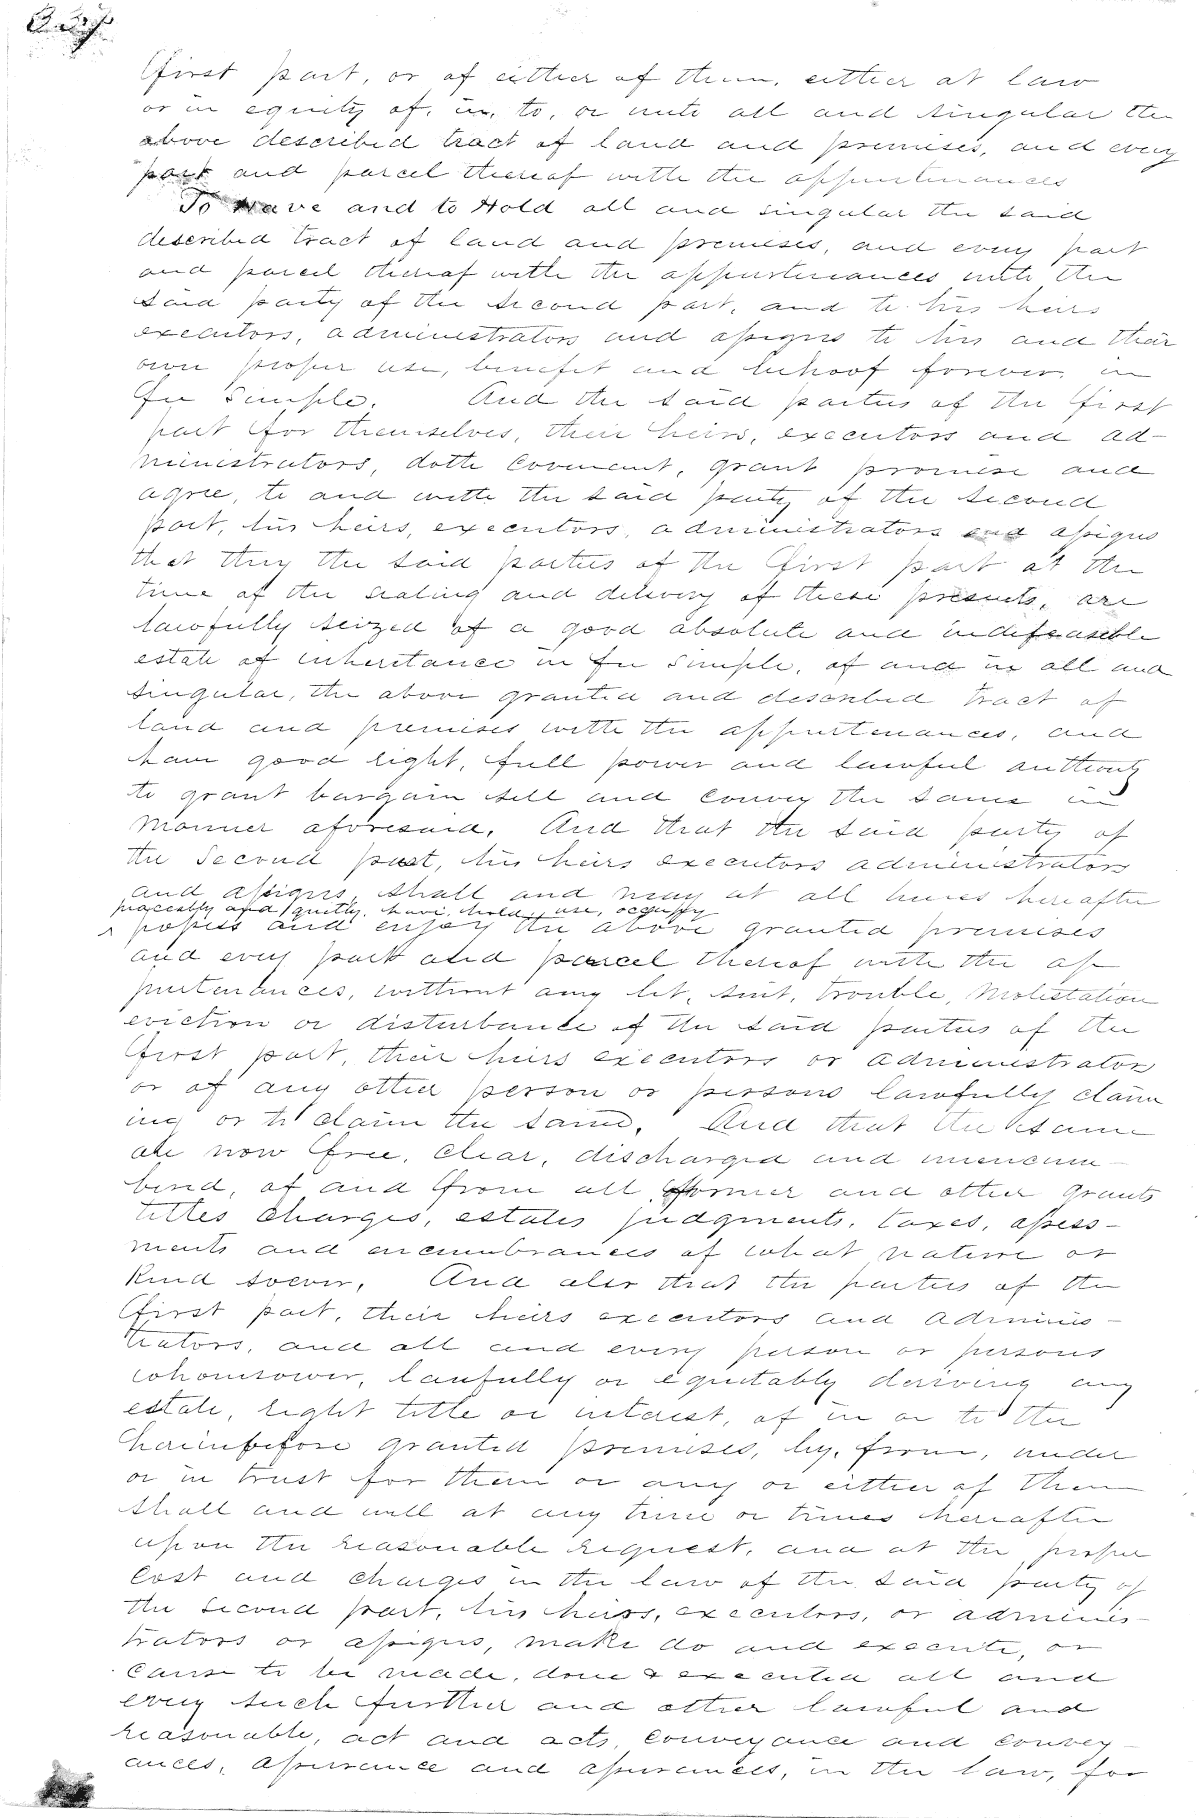 first part, or of either of them, either at law
or in equity of, in, to, or unto all and singular the
above described tract of land and premises, and every
part and parcel thereof with the appurtenances
To Have and to Hold all and singular the said
described tract of land and premises, and every part
and parcel thereof with the appurtenances unto the
said party of the second part, and to his heirs
executors, administrators and assigns to his and their
own proper use, benefit and behoof forever, in
fee Simple. And the said parties of the first
part for themselves, their heirs, executors and ad-
ministrators, doth Covenant, grant promise and
agree, to and with the said party of the second
part, his heirs, executors, administrators and assigns
that they the said parties of the first part at the
time of the sealing and delivery of these presents, are
lawfully seized of a good absolute and indefeasible
estate of inheritance in fee simple, of and in all and
singular, the above granted and described tract of
land and premises with the appurtenances, and
have good right, full power and lawful authority
to grant bargain sell and convey the same in
manner aforesaid. And that the said party of
the Second part, his heirs executors administrators
and assigns, shall and may at all times hereafter
peaceably and quietly, have, hold, use, occupy
possess and enjoy the above granted premises
and every part and parcel thereof with the ap
purtenances, without any let, suit, trouble, molestation
eviction or disturbance of the said parties of the
first part, their heirs executors or administrators
or of any other person or persons lawfully claim
ing or to claim the same. And that the same
are now free, Clear, discharged and unencum-
bered, of and from all former and other grants
titles charges, estates judgments, taxes, assess-
ments and encumbrances of what nature or
Kind soever. And also that the parties of the
first part, their heirs executors and adminis-
trators, and all and every person or persons
whomsoever, lawfully or equitably deriving any
estate, right title or interest, of in or to the
hereinbefore granted premises, by, from, under
or in trust for them or any or either of them
shall and will at any time or times hereafter
upon the reasonable request, and at the proper
Cost and charges in the law of the said party of
the second part, his heirs, executors, or adminis-
trators or assigns, make do and execute, or
cause to be made, done & executed all and
every such further and other lawful and
reasonable, act and acts, conveyance and convey-
ances, assurance and assurances, in the law, for